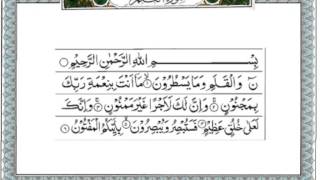 بِسْمِ اللهِ الرَّحْمٰنِ الرَّحِيْمِ
نٓ وَالْقَلَمِ وَمَا يَسْطُرُوْنَ ۙ مَآ اَنْتَ بِنِعْمَةِ رَبِّكَ
بِمَجْنُوْنٍ ۚ وَاِنَّ لَكَ لَاَجْرًا غَيْرَ مَمْنُوْنٍ ۚ وَاِنَّكَ
لَعَلٰى خُلُقٍ عَظِيْمٍ فَسَتُبْصِرُ وَيُبْصِرُوْنَ ۙ بِاَيِّكُمُ الْمَفْتُوْنُ